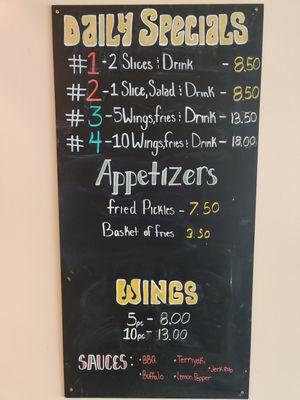 Daily Specials
#1 - 2 Slices & Drink - 8.50
#2 - 1 Slice, Salad & Drink - 8.50
#3 - 5 Wings, fries & Drink - 13.50
#4 - 10 Wings, fries & Drink - 18.00
Appetizers
fried Pickles - 7.50
Basket of fries 3.50
WINGS
5pc - 8.00
10pc - 13.00
SAUCES: • BBQ • Teriyaki • Jerk BBQ
• Buffalo • Lemon Pepper